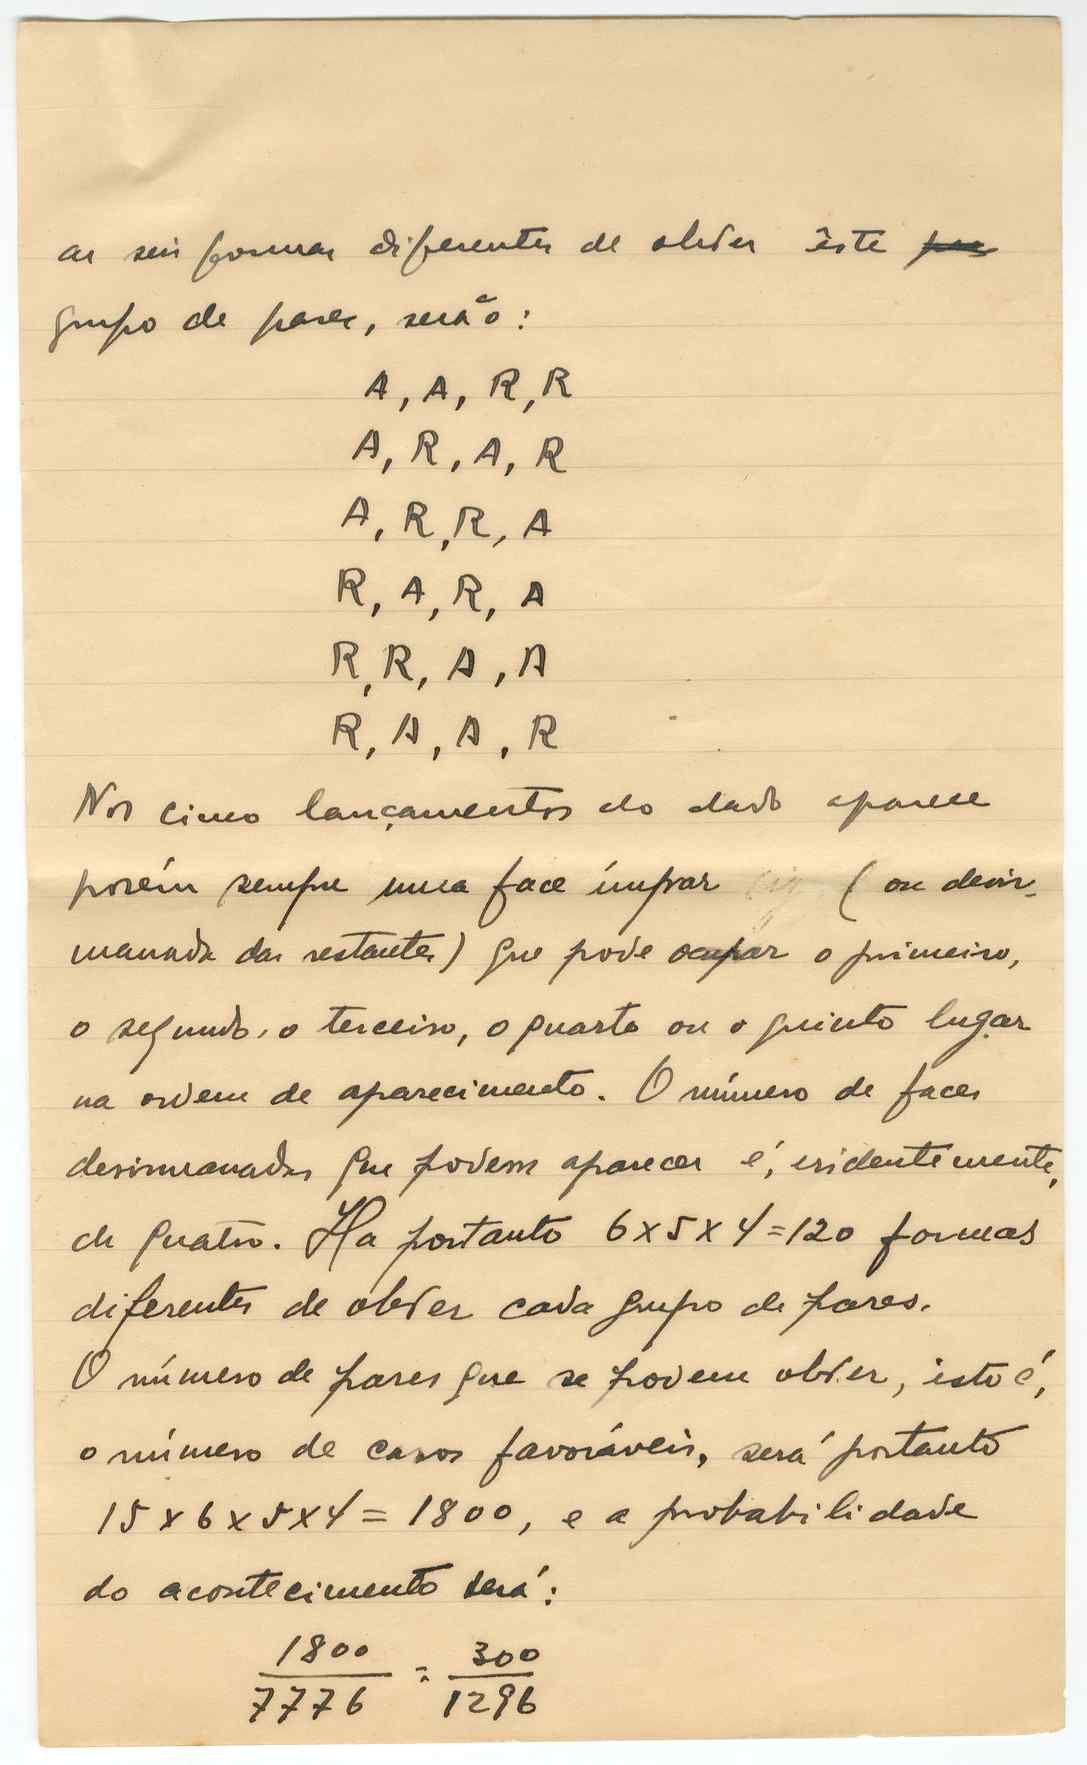 as seis formas diferentes de obter êste
grupo de pares, serão:
A, A, R, R
A, R, A, R
A, R, R, A
R, A, R, A
R, R, A, A
R, A, A, R
Nos cinco lançamentos do dado aparece
porém sempre uma face ímpar (ou desir-
manada das restantes) que pode ocupar o primeiro,
o segundo, o terceiro, o quarto ou o quinto lugar
na ordem de aparecimento. O número de faces
desirmanadas que podem aparecer é, evidentemente,
de quatro. Ha portanto 6 x 5 x 4 = 120 formas
diferentes de obter cada grupo de pares.
O número de pares que se podem obter, isto é,
o número de casos favoráveis, será portanto
15 x 6 x 5 x 4 = 1800, e a probabilidade
do acontecimento será:
1800 / 7776 = 300 / 1296